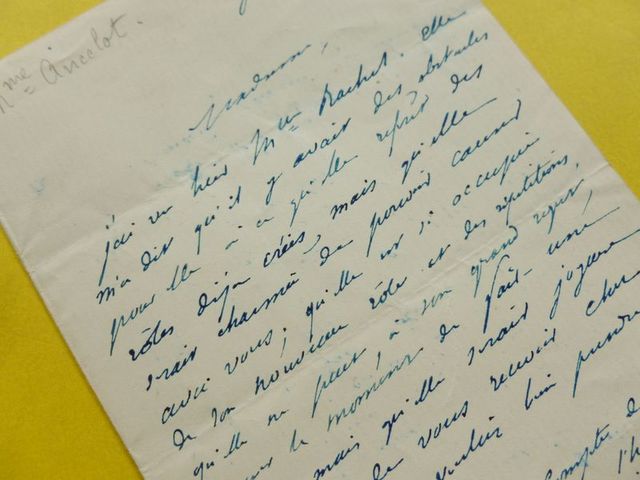 Mme Ancelot.
Madame,
j'ai vu hier Mlle Rachel. elle
m'a dit qu'il y avait des obstacles
pour elle à ce qu'elle reprît des
rôles déjà créés, mais qu'elle
serait charmée de pouvoir causer
avec vous; qu'elle est si occupée
de son nouveau rôle et des répétitions,
qu'elle ne peut, à son grand regret,
le moment de fait une
mais qu'elle serait joyeuse
de vous recevoir chez
vouloir bien prendre
compte d
l'h